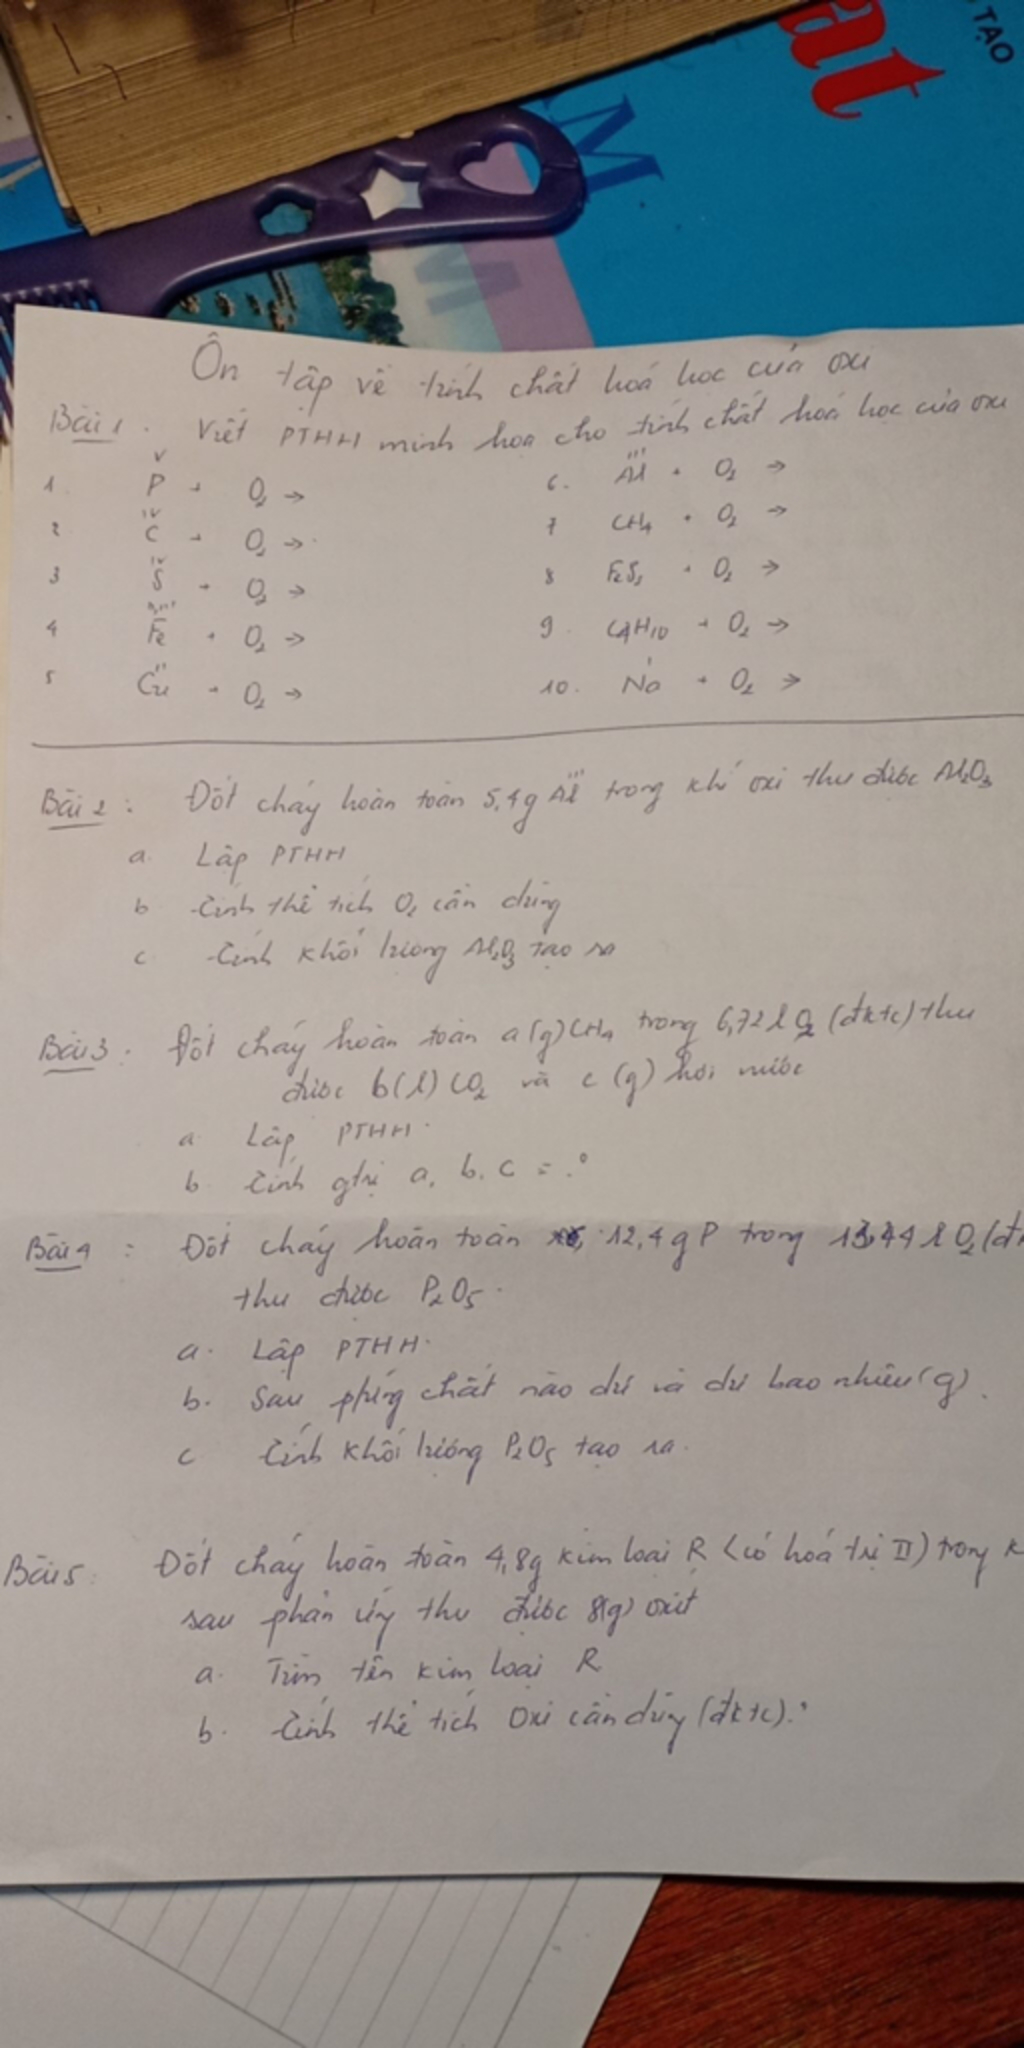 TẠO
at
M
M
Ôn tập về tính chất hoá học của oxi
Bài 1. Viết PTHH minh hoạ cho tính chất hoá học của oxi
1. P (V) + O2 →
2. C (IV) + O2 →
3. S (IV) + O2 →
4. Fe (II, III) + O2 →
5. Cu (II) + O2 →
6. Al (III) + O2 →
7. CH4 + O2 →
8. FeS2 + O2 →
9. C4H10 + O2 →
10. Na (I) + O2 →
Bài 2: Đốt cháy hoàn toàn 5,4g Al (III) trong khí oxi thu được Al2O3
a. Lập PTHH
b. Tính thể tích O2 cần dùng
c. Tính khối lượng Al2O3 tạo ra
Bài 3: Đốt cháy hoàn toàn a(g) CH4 trong 6,72 l O2 (đktc) thu
được b(l) CO2 và c (g) hơi nước
a. Lập PTHH.
b. Tính gtrị a, b, c = ?
Bài 4: Đốt cháy hoàn toàn 12,4 g P trong 13,44 l O2 (đk
thu được P2O5.
a. Lập PTHH.
b. Sau phứng chất nào dư và dư bao nhiêu (g).
c. Tính khối lượng P2O5 tạo ra.
Bài 5. Đốt cháy hoàn toàn 4,8g kim loại R (có hoá trị II) trong k
sau phản ứng thu được 8(g) oxit
a. Tìm tên kim loại R
b. Tính thể tích Oxi cần dùng (đktc).?